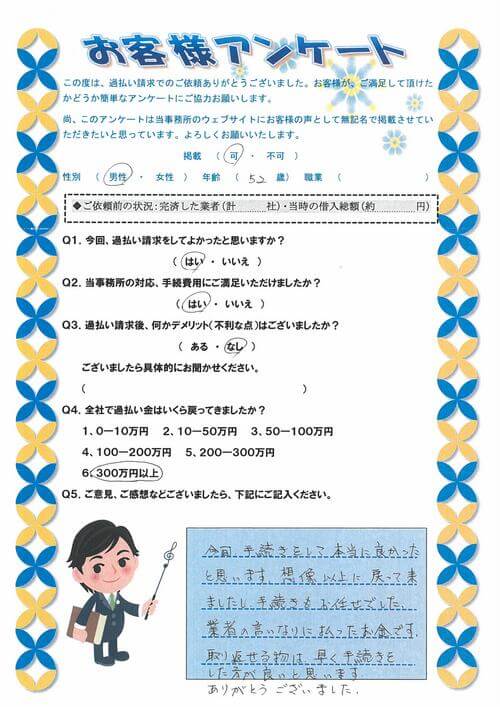 お客様アンケート
この度は、過払い請求でのご依頼ありがとうございました。お客様が、ご満足して頂けた
かどうか簡単なアンケートにご協力お願いします。
尚、このアンケートは当事務所のウェブサイトにお客様の声として無記名で掲載させてい
ただきたいと思っています。よろしくお願いいたします。
掲載 （ 可 ・ 不可 ）
性別 （ 男性 ・ 女性 ） 年齢 （ 52 歳） 職業 （ ）
◆ご依頼前の状況：完済した業者（計 社）・当時の借入総額（約 円）
Q1. 今回、過払い請求をしてよかったと思いますか？
（ はい ・ いいえ ）
Q2. 当事務所の対応、手続費用にご満足いただけましたか？
（ はい ・ いいえ ）
Q3. 過払い請求後、何かデメリット（不利な点）はございましたか？
（ ある ・ なし ）
ございましたら具体的にお聞かせください。
（ ）
Q4. 全社で過払い金はいくら戻ってきましたか？
1、0－10万円 2、10－50万円 3、50－100万円
4、100－200万円 5、200－300万円
6、300万円以上
Q5. ご意見、ご感想などございましたら、下記にご記入ください。
今回、手続きをして本当に良かった
と思います。想像以上に戻って来
ましたし、手続きもお任せでした。
業者の言いなりに払ったお金です。
取り返せる物は、早く手続きを
した方が良いと思います
ありがとうございました.